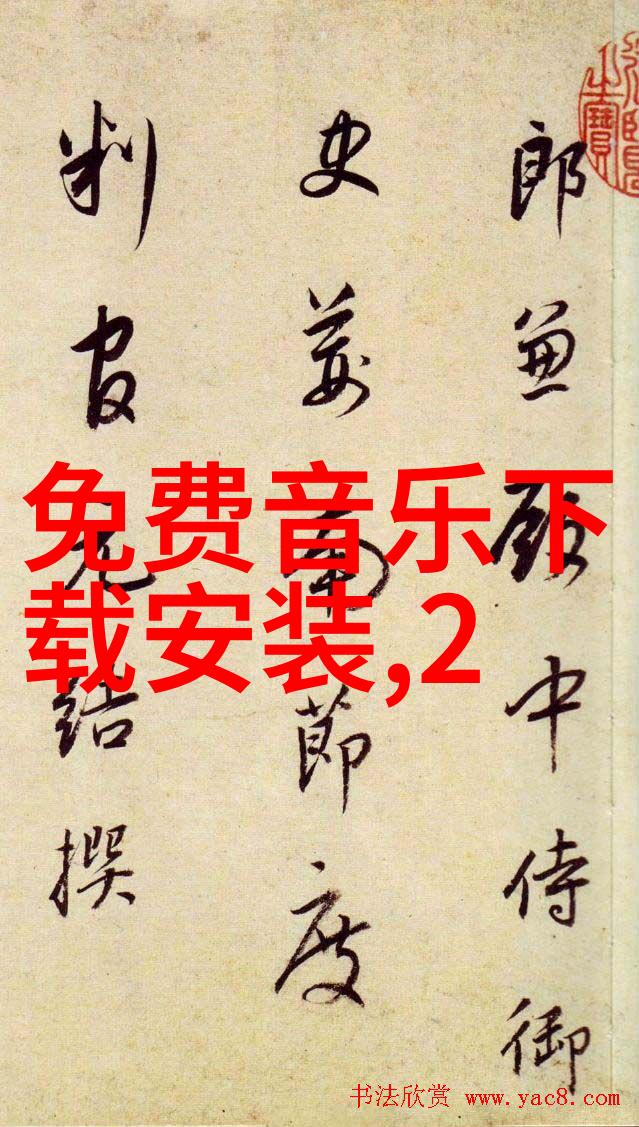 郎兼殿中侍御
史荊南節度
判官元結撰
免费音乐下
载安装,2
书法欣赏 www.yac8.com